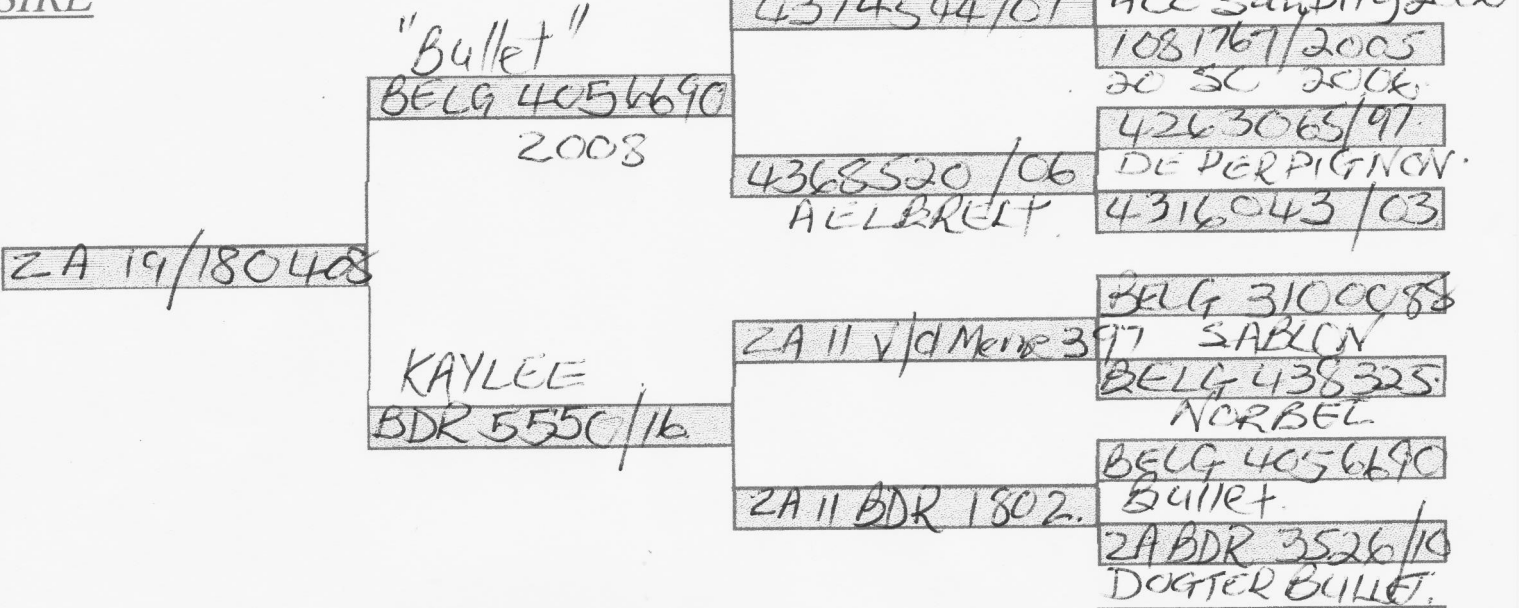 SIRE
"Bullet"
BELG 4056690
2008
ZA 19/180408
KAYLEE
BDR 5550/16
4368520/06
AELBRECHT
ZA 11 v/d Merwe 397
ZA 11 BDR 1802.
1081767/2005
20 SC 2006
4263065/97.
DE PERPIGNON.
4316043/03
BELG 3100088
SABLON
BELG 438325.
NORBEL
BELG 4056690
Bullet
ZA BDR 3526/10
DOGTER BULLET.